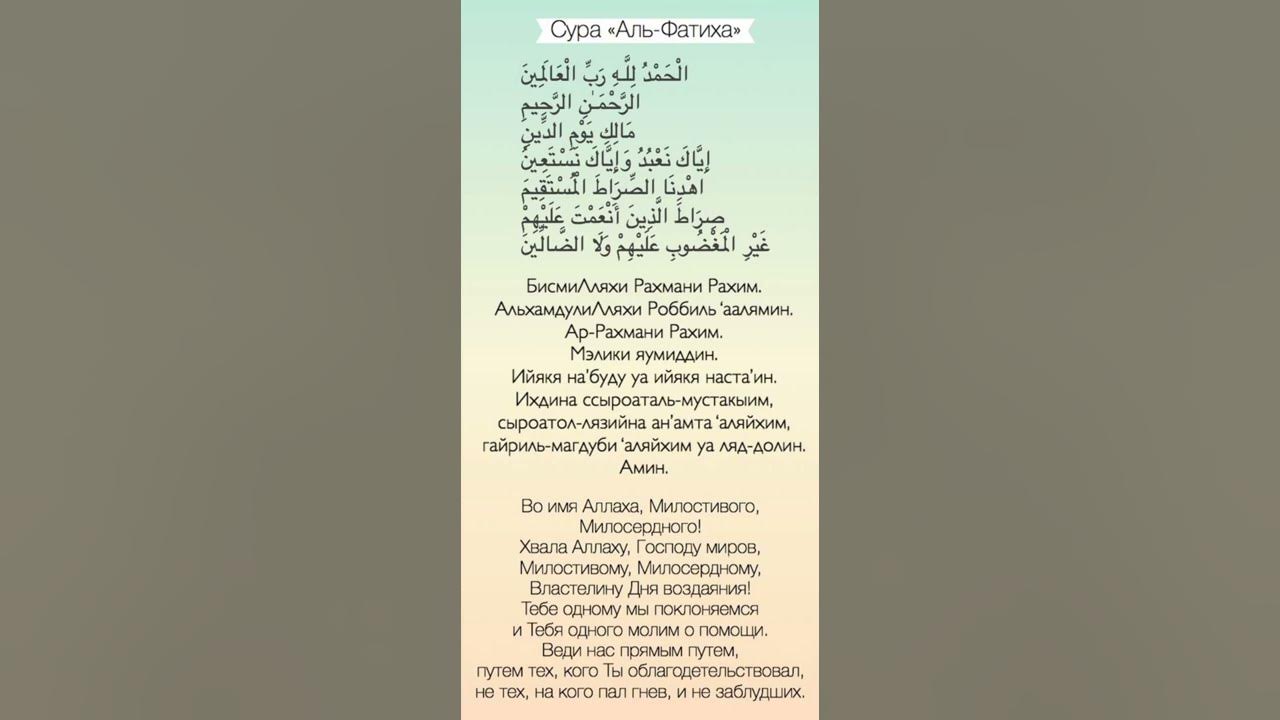 Сура «Аль-Фатиха»
الْحَمْدُ لِلَّـهِ رَبِّ الْعَالَمِينَ
الرَّحْمَـٰنِ الرَّحِيمِ
مَالِكِ يَوْمِ الدِّينِ
إِيَّاكَ نَعْبُدُ وَإِيَّاكَ نَسْتَعِينُ
اهْدِنَا الصِّرَاطَ الْمُسْتَقِيمَ
صِرَاطَ الَّذِينَ أَنْعَمْتَ عَلَيْهِمْ
غَيْرِ الْمَغْضُوبِ عَلَيْهِمْ وَلَا الضَّالِّينَ
БисмиЛляхи Рахмани Рахим.
АльхамдулиЛляхи Роббиль ‘аалямин.
Ар-Рахмани Рахим.
Мэлики яумиддин.
Ийякя на’буду уа ийякя наста’ин.
Ихдина ссыроаталь-мустакыим,
сыроатол-лязийна ан’амта ‘аляйхим,
гайриль-магдуби ‘аляйхим уа ляд-долин.
Амин.
Во имя Аллаха, Милостивого,
Милосердного!
Хвала Аллаху, Господу миров,
Милостивому, Милосердному,
Властелину Дня воздаяния!
Тебе одному мы поклоняемся
и Тебя одного молим о помощи.
Веди нас прямым путем,
путем тех, кого Ты облагодетельствовал,
не тех, на кого пал гнев, и не заблудших.